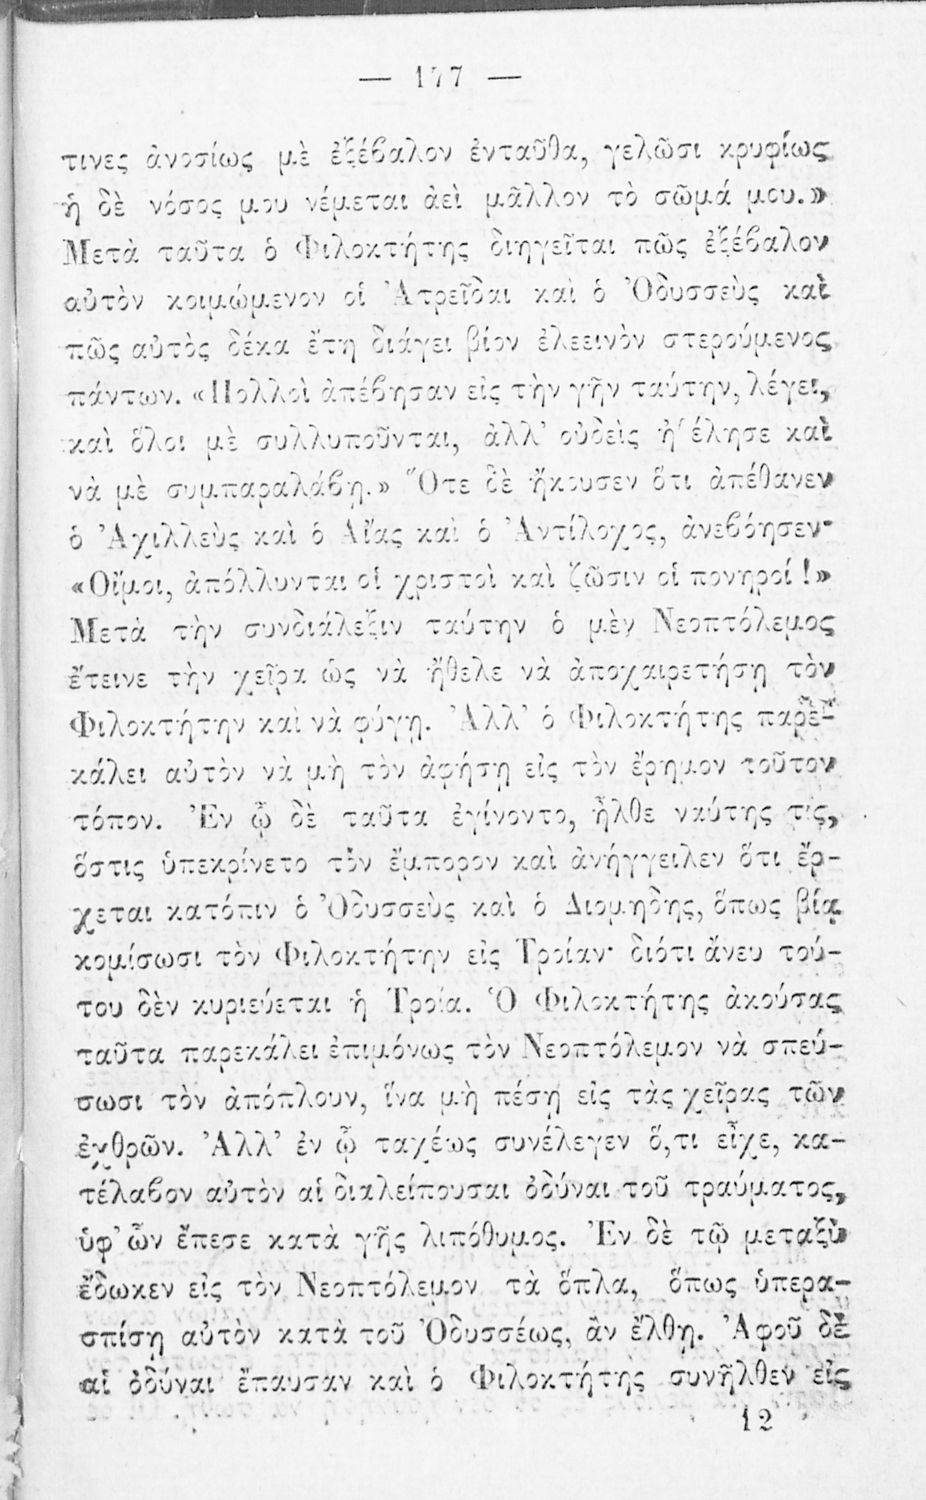 — 177 —
τινες ἀνοσίως μὲ ἐξέβαλον ἐνταῦθα, γελῶσι κρυφίως
ἡ δὲ νόσος μου νέμεται ἀεὶ μᾶλλον τὸ σῶμά μου.»
Μετὰ ταῦτα ὁ Φιλοκτήτης διηγεῖται πῶς ἐξέβαλον
αὐτὸν κοιμώμενον οἱ Ἀτρεῖδαι καὶ ὁ Ὀδυσσεὺς καὶ
πῶς αὐτὸς δέκα ἔτη διάγει βίον ἐλεεινὸν στερούμενος
πάντων. «Πολλοὶ ἀπέβησαν εἰς τὴν γῆν ταύτην, λέγει,
καὶ ὅλοι μὲ συλλυποῦνται, ἀλλ’ οὐδεὶς ἠθέλησε καὶ
νὰ μὲ συμπαραλάβῃ.» Ὅτε δὲ ἤκουσεν ὅτι ἀπέθανεν
ὁ Ἀχιλλεὺς καὶ ὁ Αἴας καὶ ὁ Ἀντίλοχος, ἀνεβόησεν·
«Οἴμοι, ἀπόλλυνται οἱ χριστοὶ καὶ ζῶσιν οἱ πονηροί!»
Μετὰ τὴν συνδιάλεξιν ταύτην ὁ μὲν Νεοπτόλεμος
ἔτεινε τὴν χεῖρα ὡς νὰ ἤθελε νὰ ἀποχαιρετήσῃ τὸν
Φιλοκτήτην καὶ νὰ φύγῃ. Ἀλλ’ ὁ Φιλοκτήτης παρε-
κάλει αὐτὸν νὰ μὴ τὸν ἀφήσῃ εἰς τὸν ἔρημον τοῦτον
τόπον. Ἐν ᾧ δὲ ταῦτα ἐγίνοντο, ἦλθε ναύτης τις,
ὅστις ὑπεκρίνετο τὸν ἔμπορον καὶ ἀνήγγειλεν ὅτι ἔρ-
χεται κατόπιν ὁ Ὀδυσσεὺς καὶ ὁ Διομήδης, ὅπως βίᾳ
κομίσωσι τὸν Φιλοκτήτην εἰς Τροίαν· διότι ἄνευ τού-
του δὲν κυριεύεται ἡ Τροία. Ὁ Φιλοκτήτης ἀκούσας
ταῦτα παρεκάλει ἐπιμόνως τὸν Νεοπτόλεμον νὰ σπεύ-
σωσι τὸν ἀπόπλουν, ἵνα μὴ πέσῃ εἰς τὰς χεῖρας τῶν
ἐχθρῶν. Ἀλλ’ ἐν ᾧ ταχέως συνέλεγεν ὅ,τι εἶχε, κα-
τέλαβον αὐτὸν αἱ διαλείπουσαι ὀδύναι τοῦ τραύματος,
ὑφ’ ὧν ἔπεσε κατὰ γῆς λιπόθυμος. Ἐν δὲ τῷ μεταξὺ
ἔδωκεν εἰς τὸν Νεοπτόλεμον τὰ ὅπλα, ὅπως ὑπερα-
σπίσῃ αὐτὸν κατὰ τοῦ Ὀδυσσέως, ἂν ἔλθῃ. Ἀφοῦ δὲ
αἱ ὀδύναι ἔπαυσαν καὶ ὁ Φιλοκτήτης συνῆλθεν εἰς
12